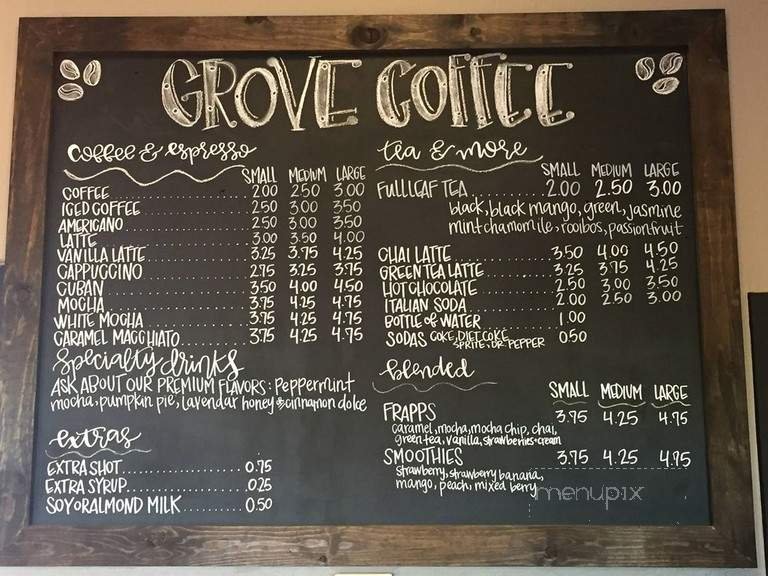 GROVE COFFEE
coffee & espresso
SMALL MEDIUM LARGE
COFFEE 2.00 2.50 3.00
ICED COFFEE 2.50 3.00 3.50
AMERICANO 2.50 3.00 3.50
LATTE 3.00 3.50 4.00
VANILLA LATTE 3.25 3.75 4.25
CAPPUCCINO 2.75 3.25 3.75
CUBAN 3.50 4.00 4.50
MOCHA 3.75 4.25 4.75
WHITE MOCHA 3.75 4.25 4.75
CARAMEL MACCHIATO 3.75 4.25 4.75
specialty drinks
ASK ABOUT OUR PREMIUM FLAVORS: Peppermint
mocha, pumpkin pie, lavendar honey & cinnamon dolce
extras
EXTRA SHOT 0.75
EXTRA SYRUP 0.25
SOY OR ALMOND MILK 0.50
tea & more
SMALL MEDIUM LARGE
FULLLEAF TEA 2.00 2.50 3.00
black, black mango, green, jasmine
mint chamomile, rooibos, passionfruit
CHAI LATTE 3.50 4.00 4.50
GREEN TEA LATTE 3.25 3.75 4.25
HOT CHOCOLATE 2.50 3.00 3.50
ITALIAN SODA 2.00 2.50 3.00
BOTTLE of WATER 1.00
SODAS COKE, DIET COKE, 0.50
SPRITE, DR. PEPPER
blended
SMALL MEDIUM LARGE
FRAPPS 3.75 4.25 4.75
caramel, mocha, mocha chip, chai,
green tea, vanilla, strawberries + cream
SMOOTHIES 3.75 4.25 4.75
strawberry, strawberry banana,
mango, peach, mixed berry
menupix